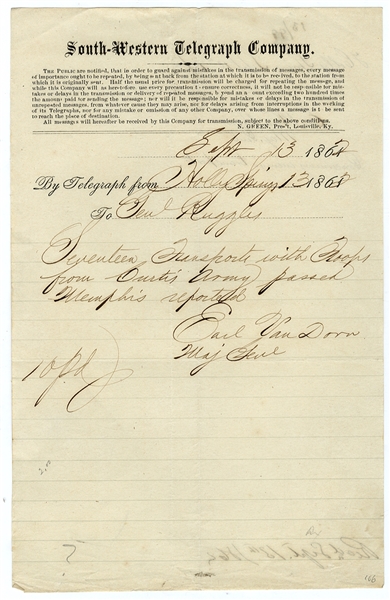 South-Western Telegraph Company.
THE PUBLIC are notified, that in order to guard against mistakes in the transmission of messages, every message
of importance ought to be repeated, by being sent back from the station at which it is to be received, to the station from
which it is originally sent. Half the usual price for transmission will be charged for repeating the message, and
while this Company will as heretofore use every precaution to ensure correctness, it will not be responsible for mis-
takes or delays in the transmission or delivery of repeated messages, beyond an amount exceeding two hundred times
the amount paid for sending the message; nor will it be responsible for mistakes or delays in the transmission of
unrepeated messages, from whatever cause they may arise, nor for delays arising from interruptions in the working
of its Telegraphs, nor for any mistake or omission of any other Company, over whose lines a message is to be sent
to reach the place of destination.
All messages will hereafter be received by this Company for transmission, subject to the above conditions.
N. GREEN, Pres't, Louisville, Ky.
Sept 13 1862
By Telegraph from Holly Springs 13 1862
To Genl Ruggles
Seventeen Transports with Troops
from Curtis Army passed
Memphis reported
Earl Van Dorn
Maj Genl
10 Pd
5
166